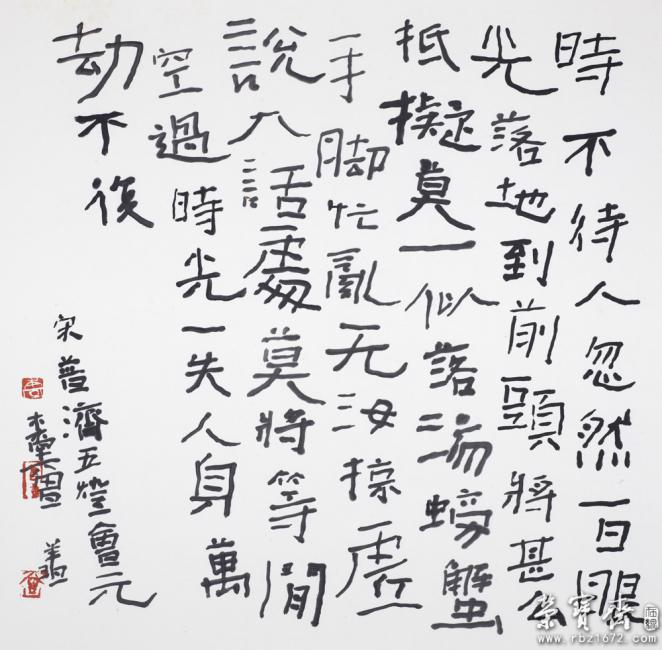 時不待人忽然一日眼
光落地到前頭將甚么
抵擬莫一似落湯螃蟹
手脚忙亂无汝掠虛
說大話處莫將等閒
空過時光一失人身萬
劫不復
宋普濟五燈會元
榮寶齋
www.rbz1672.com